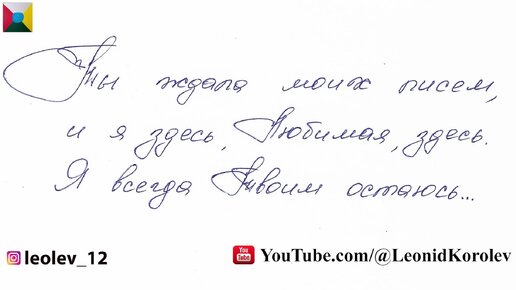 Ты ждала моих писем,
и я здесь, Любимая, здесь.
Я всегда Твоим остаюсь...
leolev_12
You Tube YouTube.com/@LeonidKorolev